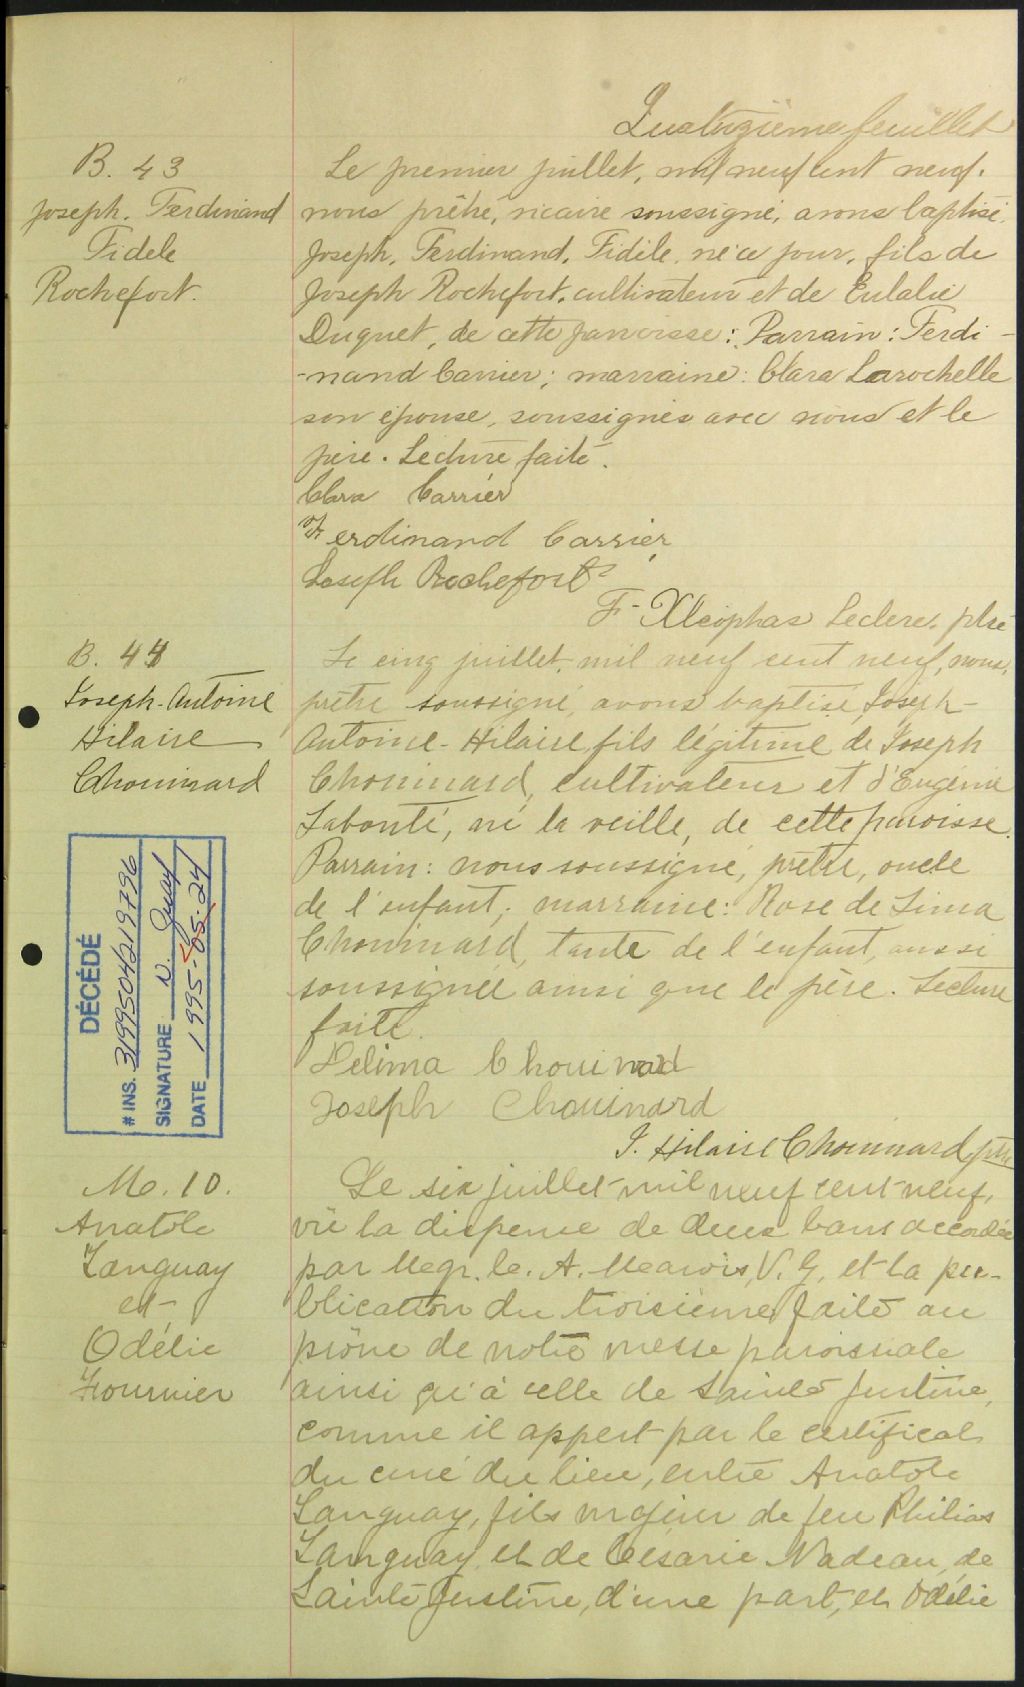 Quatorzième feuillet
B. 43
Joseph. Ferdinand
Fidele
Rochefort.
Le premier juillet, mil neuf cent neuf.
nous prêtre, vicaire soussigné, avons baptisé
Joseph, Ferdinand, Fidèle, né ce jour, fils de
Joseph Rochefort, cultivateur et de Eulalie
Duquet, de cette paroisse: Parrain: Ferdi-
-nand Carrier; marraine: Clara Larochelle
son épouse, soussignés avec nous et le
père. Lecture faite.
Clara Carrier
Ferdinand Carrier
Joseph Rochefort
F-Xléophas Leclerc, ptre
B. 44
Joseph-Antoine
Hilaire
Chouinard
Le cinq juillet, mil neuf cent neuf, nous,
prêtre soussigné, avons baptisé Joseph-
Antoine-Hilaire fils légitime de Joseph
Chouinard, cultivateur et d'Eugénie
Labonté, né la veille, de cette paroisse.
Parrain: nous soussigné, prêtre, oncle
de l'enfant; marraine: Rose de Lima
Chouinard, tante de l'enfant, aussi
soussignée ainsi que le père. Lecture
faite.
Delima Chouinard
Joseph Chouinard
J. Hilaire Chouinard, ptre
DÉCÉDÉ
# INS. 3199504219796
SIGNATURE N. Guay
DATE 1995-05-24
M. 10.
Anatole
Tanguay
et
Odélie
Fournier
Le six juillet mil neuf cent neuf,
vu la dispense de deux bans accordée
par Megr. C. A. Marois, V. G, et la pu-
blication du troisième faite au
prône de notre messe paroissiale
ainsi qu'à celle de Sainte Justine,
comme il appert par le certificat
du curé du lieu, entre Anatole
Tanguay, fils majeur de feu Philias
Tanguay et de Césarie Nadeau, de
Sainte Justine, d'une part, et Odélie